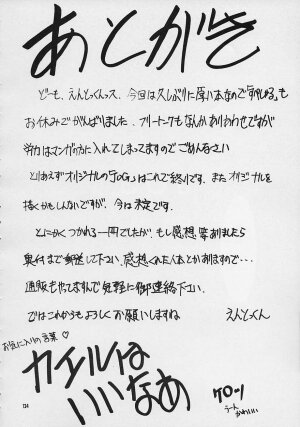 あとがき
どーも、えんとっくんっス。今回は久しぶりに厚い本なので も
お休みでがんばりました。フリートークもなんかありわせですが
労力はマンガの方に入れてしまってますのでごめんなさい
とりあえずオリジナルの「JOG」はこれで終りです。またオリジナルを
描くかもしんないですが、今は未定です。
とにかくつかれる一冊でしたが、もし感想等ありましたら
奥付まで郵送して下さい。感想くれた人本とかしますので…
通販もやてますんで気軽に御連絡下さい。
ではこれからもよろしくお願いしますね
えんとっくん
お気に入りの言葉♡
カエルは
いいなあ
ケロッ
かわいい
134